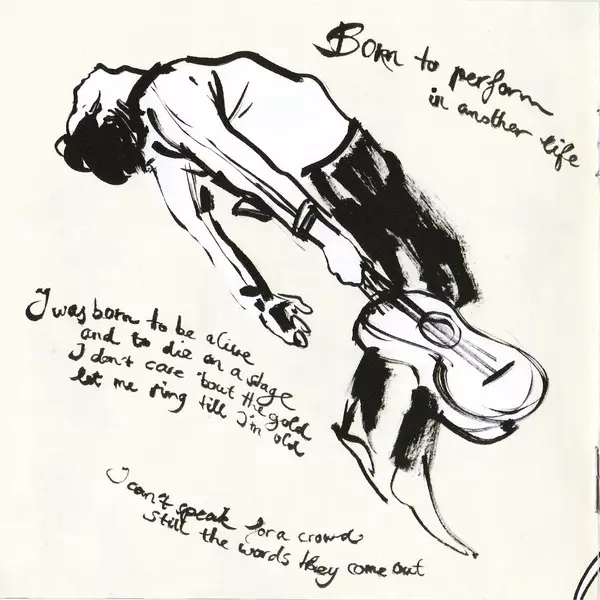 Born to perform
in another life
I was born to be alive
and to die on a stage
I don't care 'bout the gold
let me sing till I'm old
I can't speak for a crowd
still the words they come out